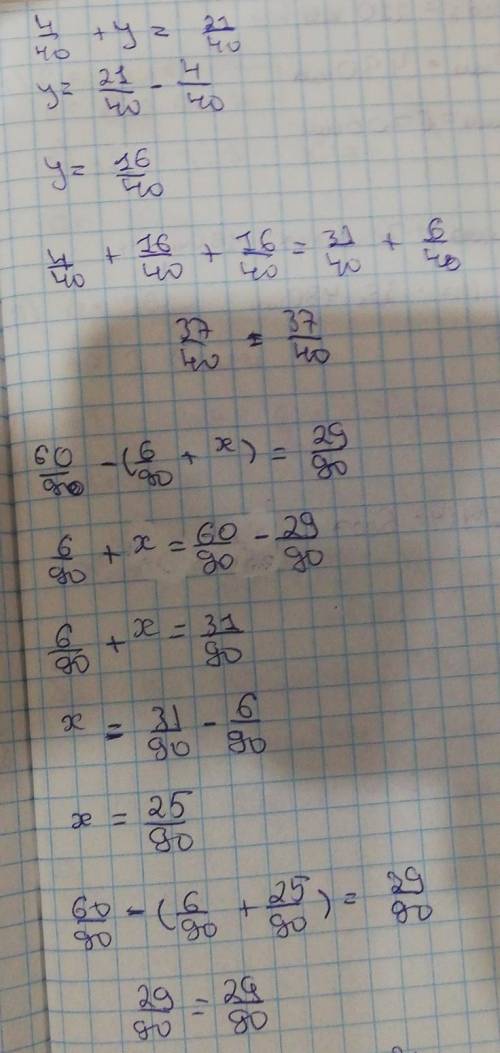 4/40 + y = 21/40
y = 21/40 - 4/40
y = 16/40
4/40 + 16/40 + 16/40 = 31/40 + 6/40
37/40 = 37/40
60/90 - (6/90 + x) = 29/90
6/90 + x = 60/90 - 29/90
6/90 + x = 31/90
x = 31/90 - 6/90
x = 25/90
60/90 - (6/90 + 25/90) = 29/90
29/90 = 29/90